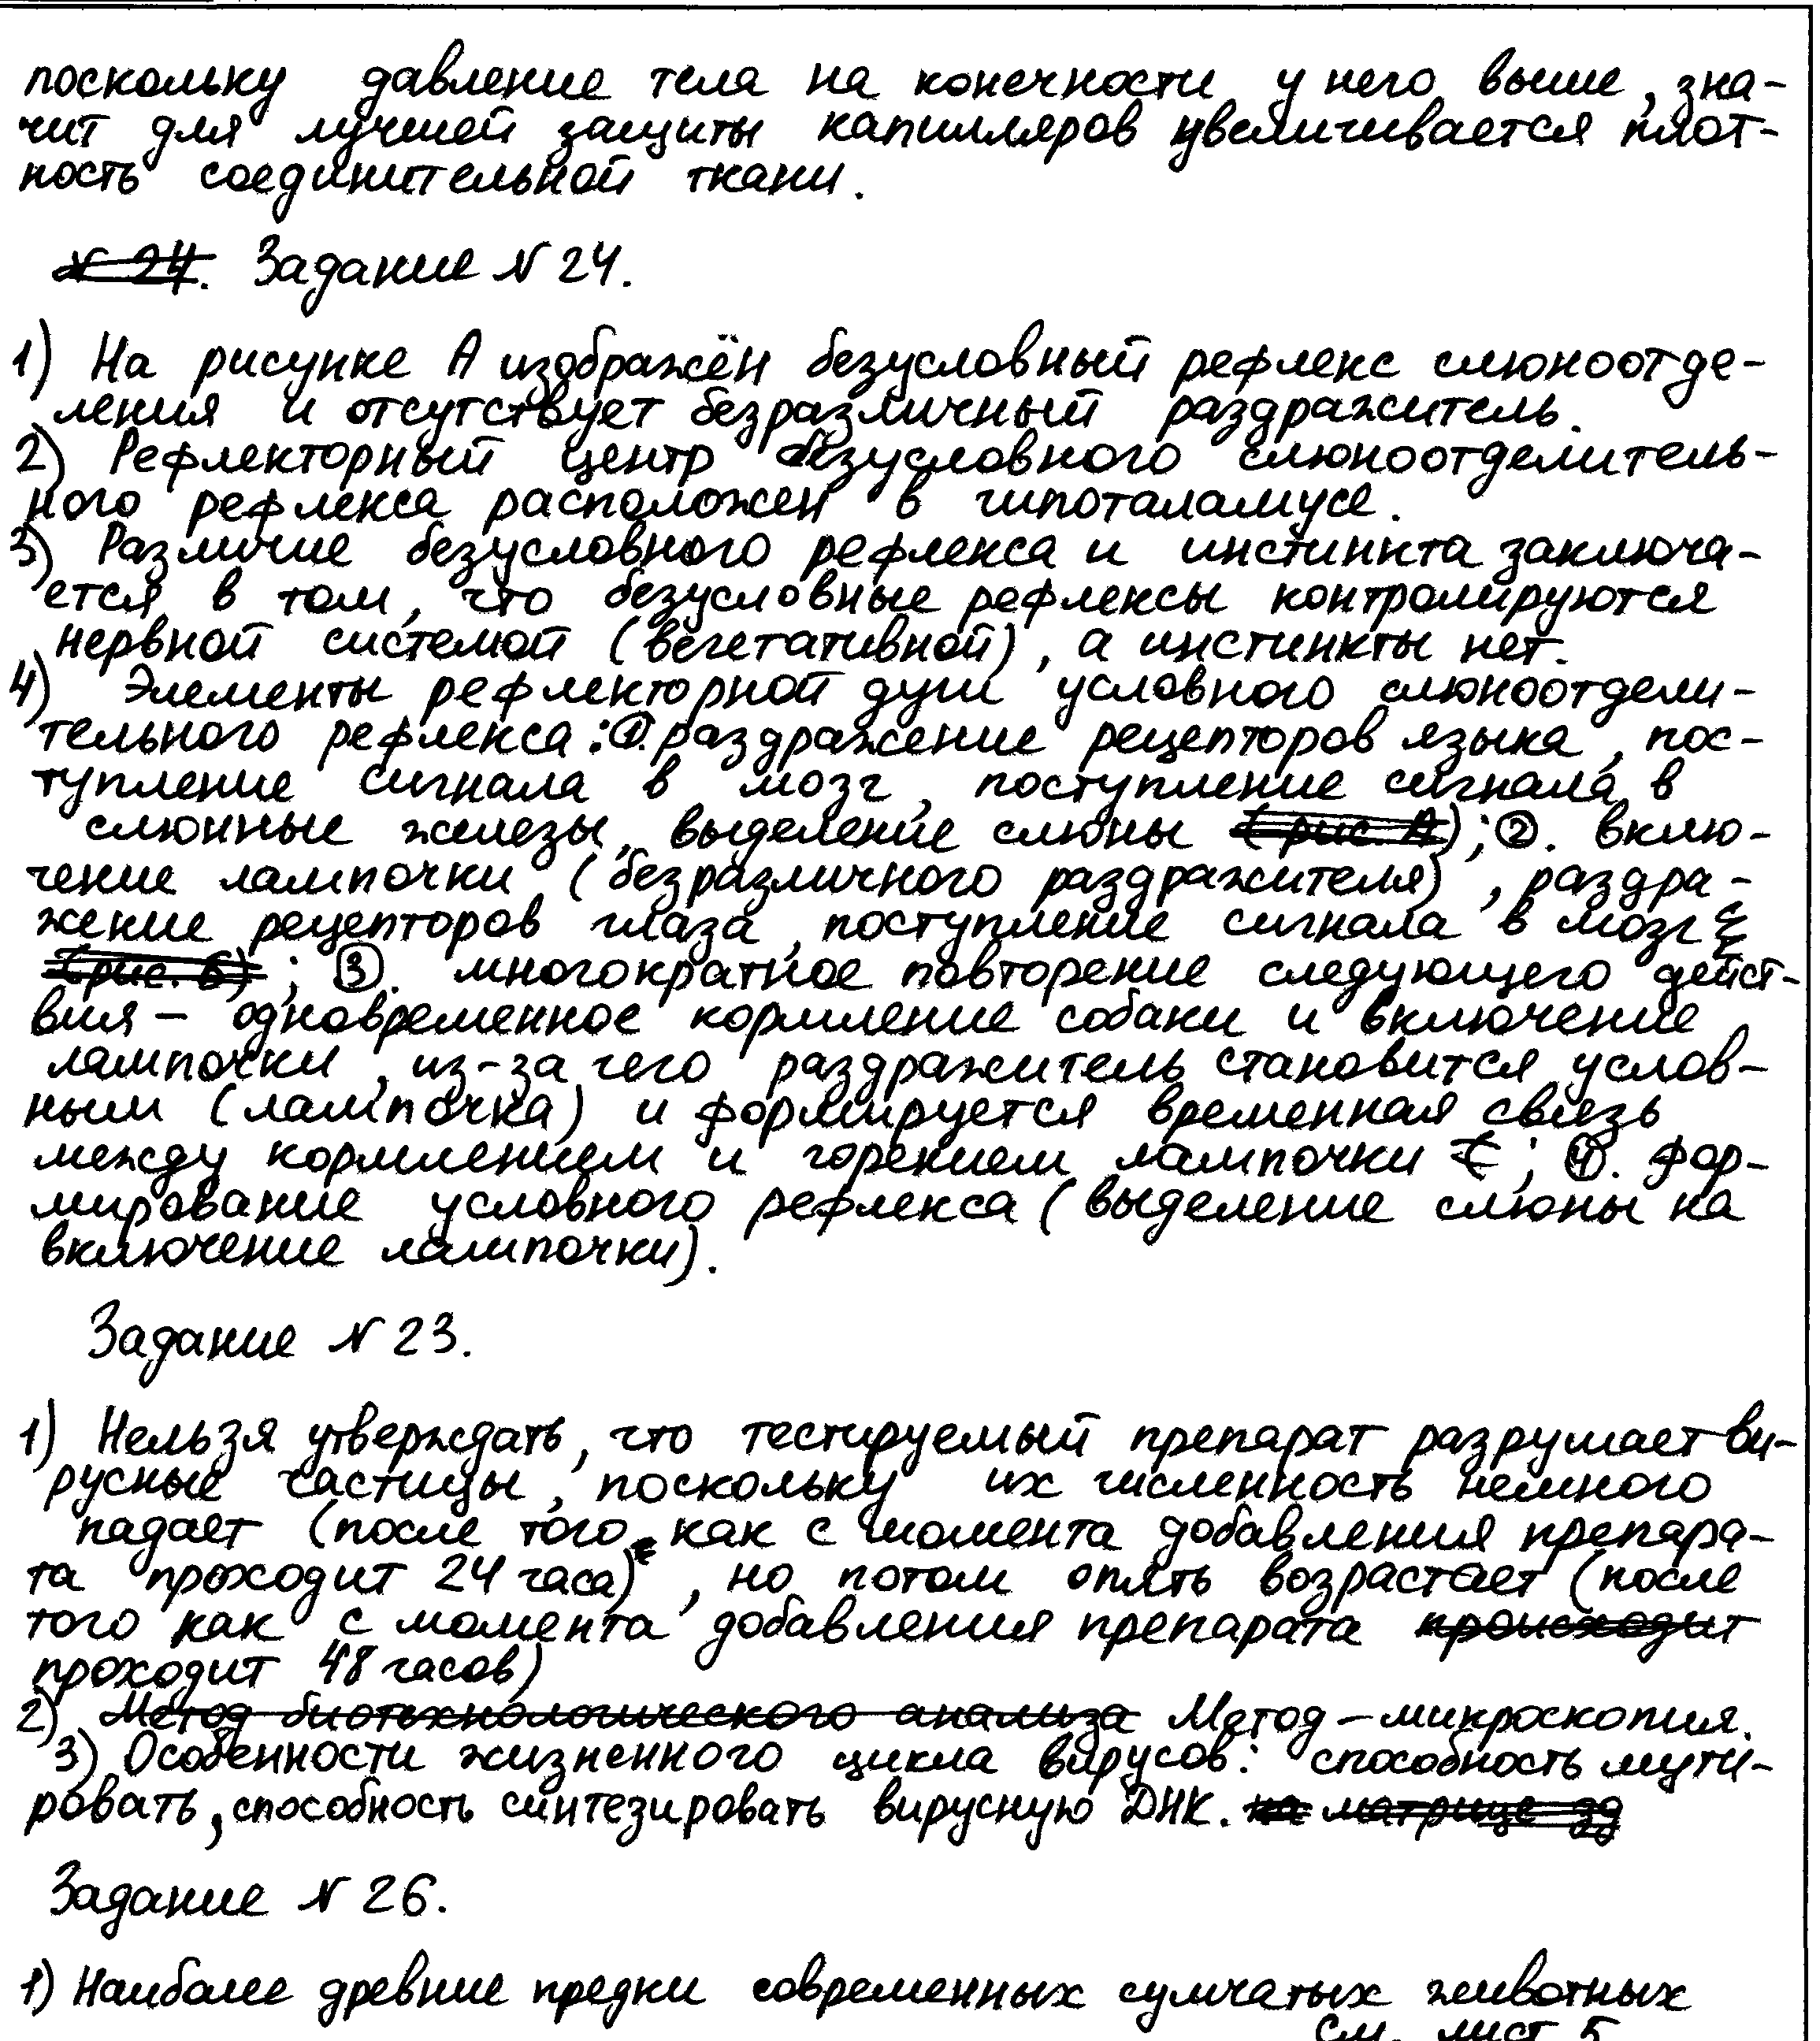 поскольку давление тела на конечности у него выше, зна-
чит для лучшей защиты капилляров увеличивается плот-
ность соединительной ткани.
№ 24. Задание № 24.
1) На рисунке А изображён безусловный рефлекс слюноотде-
ления и отсутствует безразличный раздражитель.
2) Рефлекторный центр безусловного слюноотделитель-
ного рефлекса расположен в гипоталамусе.
3) Различие безусловного рефлекса и инстинкта заключа-
ется в том, что безусловные рефлексы контролируются
нервной системой (вегетативной), а инстинкты нет.
4) Элементы рефлекторной дуги условного слюноотдели-
тельного рефлекса: ①. раздражение рецепторов языка, пос-
тупление сигнала в мозг, поступление сигнала в
слюнные железы, выделение слюны (рис. А); ②. вклю-
чение лампочки (безразличного раздражителя), раздра-
жение рецепторов глаза, поступление сигнала в мозг
(рис. Б); ③. многократное повторение следующего дейст-
вия – одновременное кормление собаки и включение
лампочки, из-за чего раздражитель становится услов-
ным (лампочка) и формируется временная связь
между кормлением и горением лампочки (; ④. фор-
мирование условного рефлекса (выделение слюны на
включение лампочки).
Задание № 23.
1) Нельзя утверждать, что тестируемый препарат разрушает ви-
русные частицы, поскольку их численность немного
падает (после того как с момента добавления препара-
та проходит 24 часа), но потом опять возрастает (после
того как с момента добавления препарата происходит
проходит 48 часов)
2) Метод биотехнологического анализа Метод – микроскопия.
3) Особенности жизненного цикла вирусов: способность мути-
ровать, способность синтезировать вирусную ДНК. на матрице зд
Задание № 26.
1) Наиболее древние предки современных сумчатых животных
см. лист 5